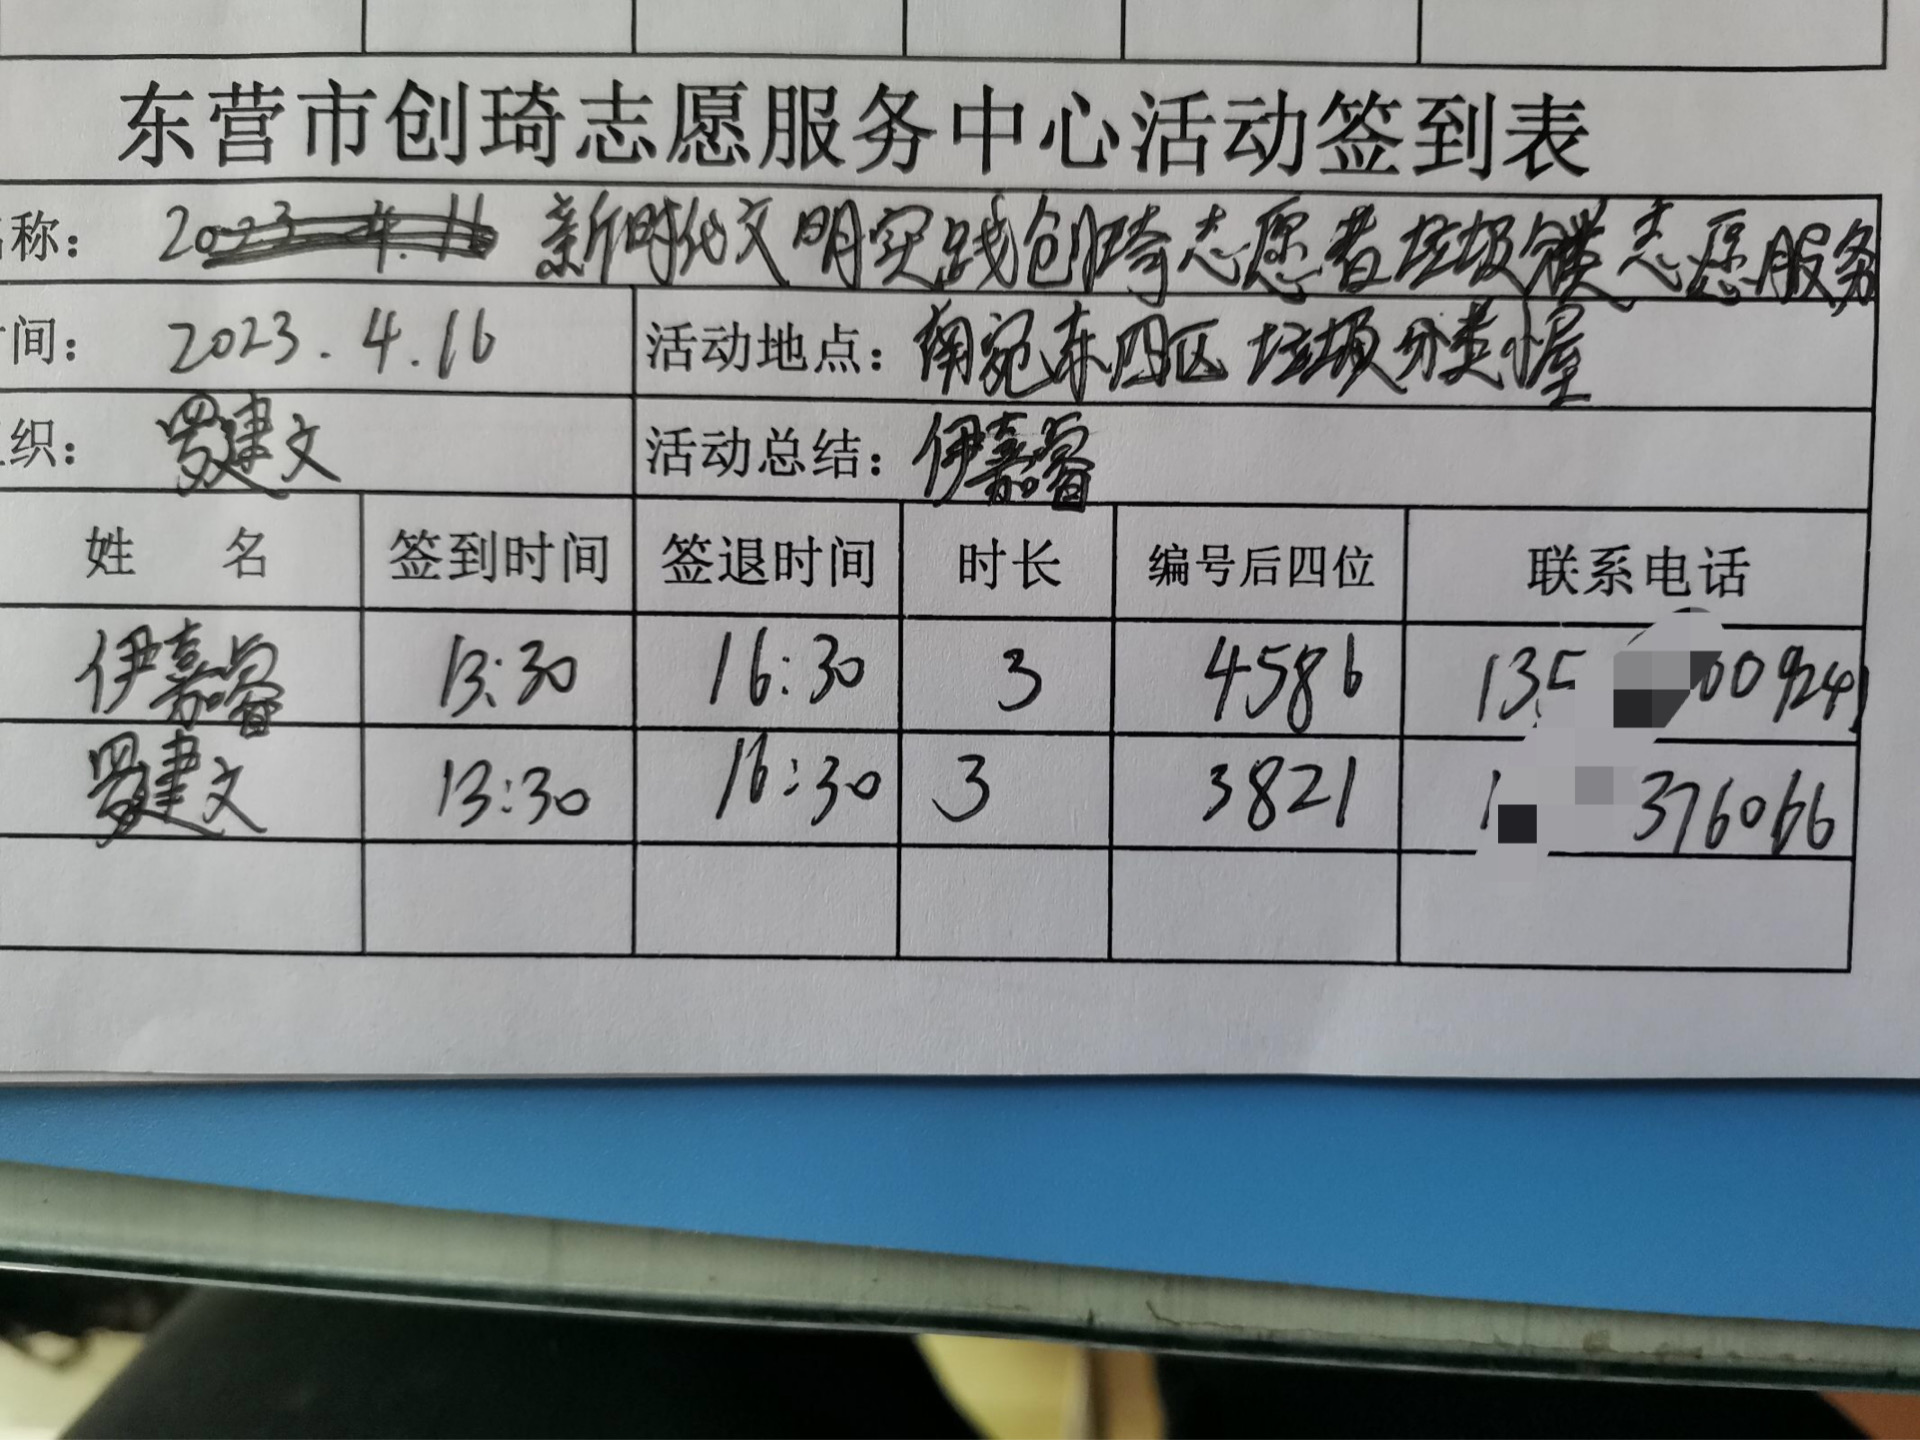 东营市创琦志愿服务中心活动签到表
称： 新时代文明实践创琦志愿者垃圾分类志愿服务
间： 2023.4.16 活动地点： 南宛东四区垃圾分类小屋
织： 罗建文 活动总结： 伊嘉睿
姓 名 签到时间 签退时间 时长 编号后四位 联系电话
伊嘉睿 13:30 16:30 3 4586 135 009241
罗建文 13:30 16:30 3 3821 1 376066